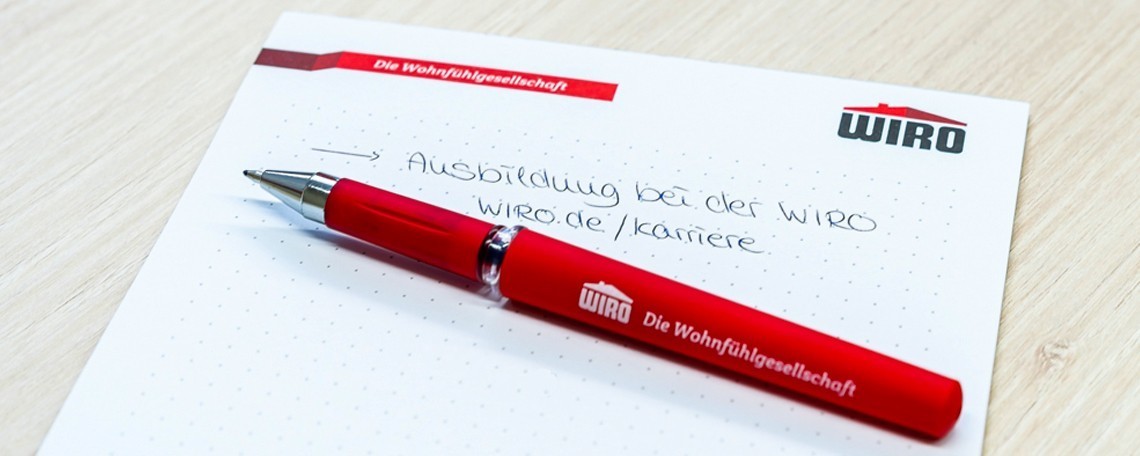 Die Wohnfühlgesellschaft
WIRO
→ Ausbildung bei der WIRO
WIRO.de/Karriere
WIRO Die Wohnfühlgesellschaft